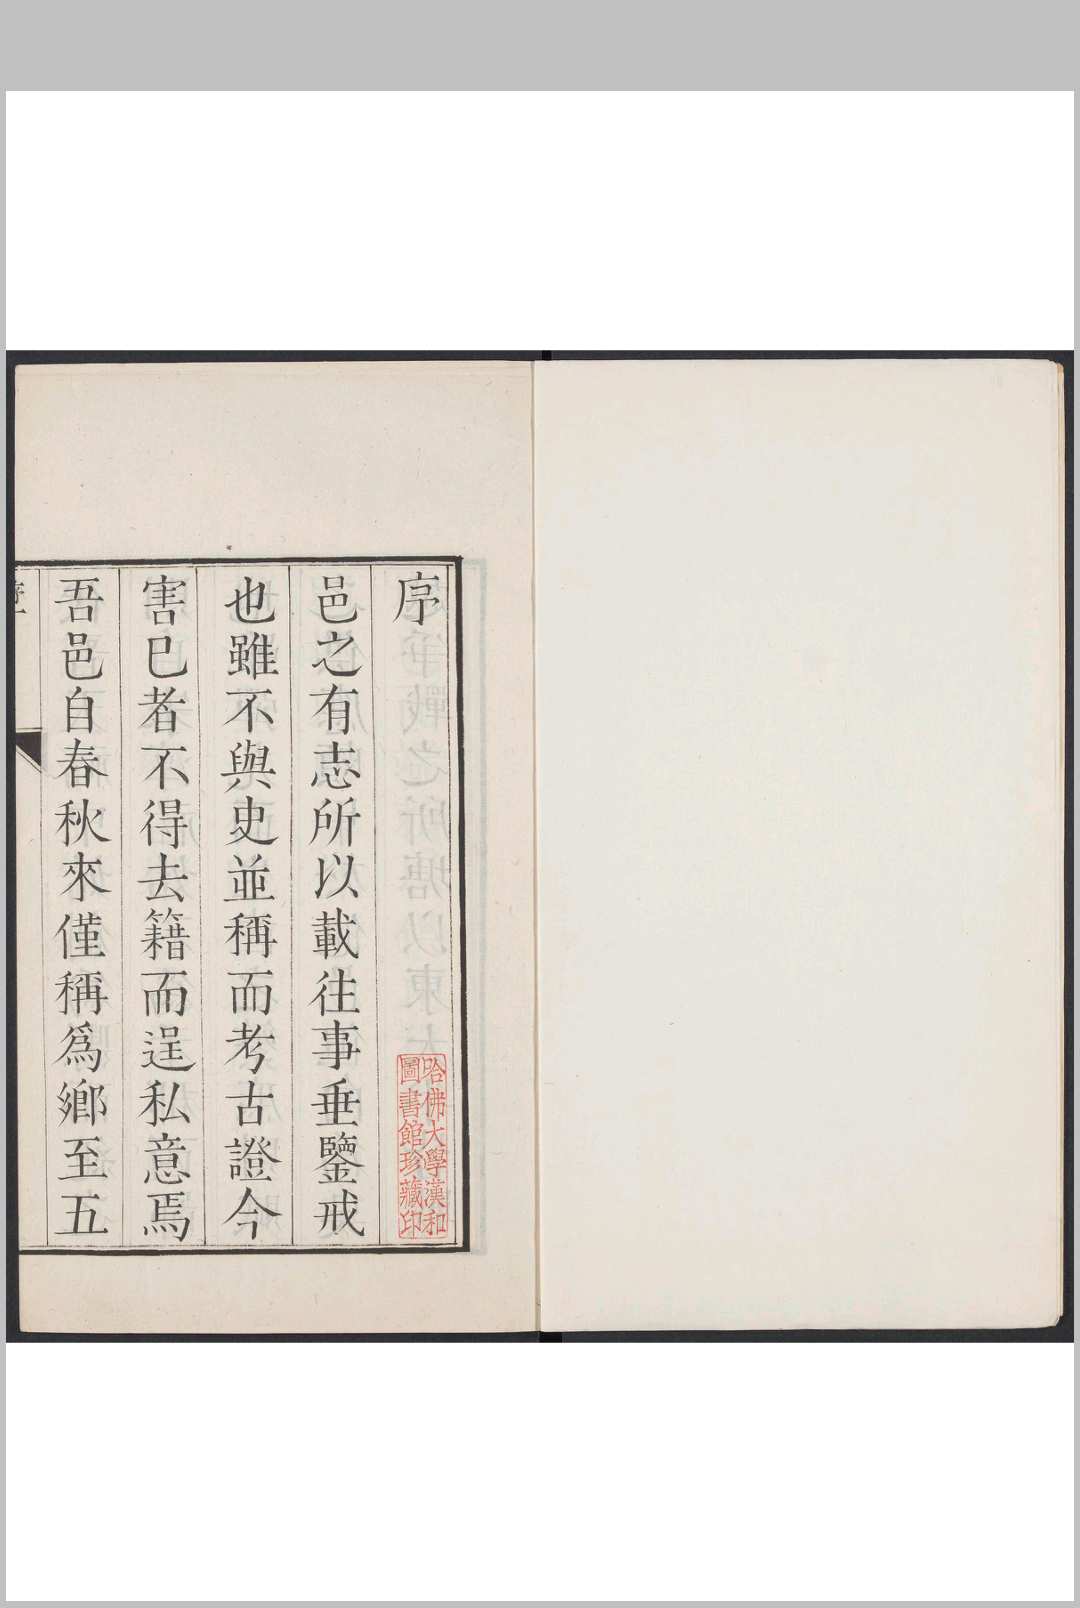 序
邑之有志所以載往事垂鑒戒
也雖不與史並稱而考古證今
害巳者不得去籍而逞私意焉
吾邑自春秋來僅稱爲鄉至五
哈佛大學漢和
圖書館珍藏印